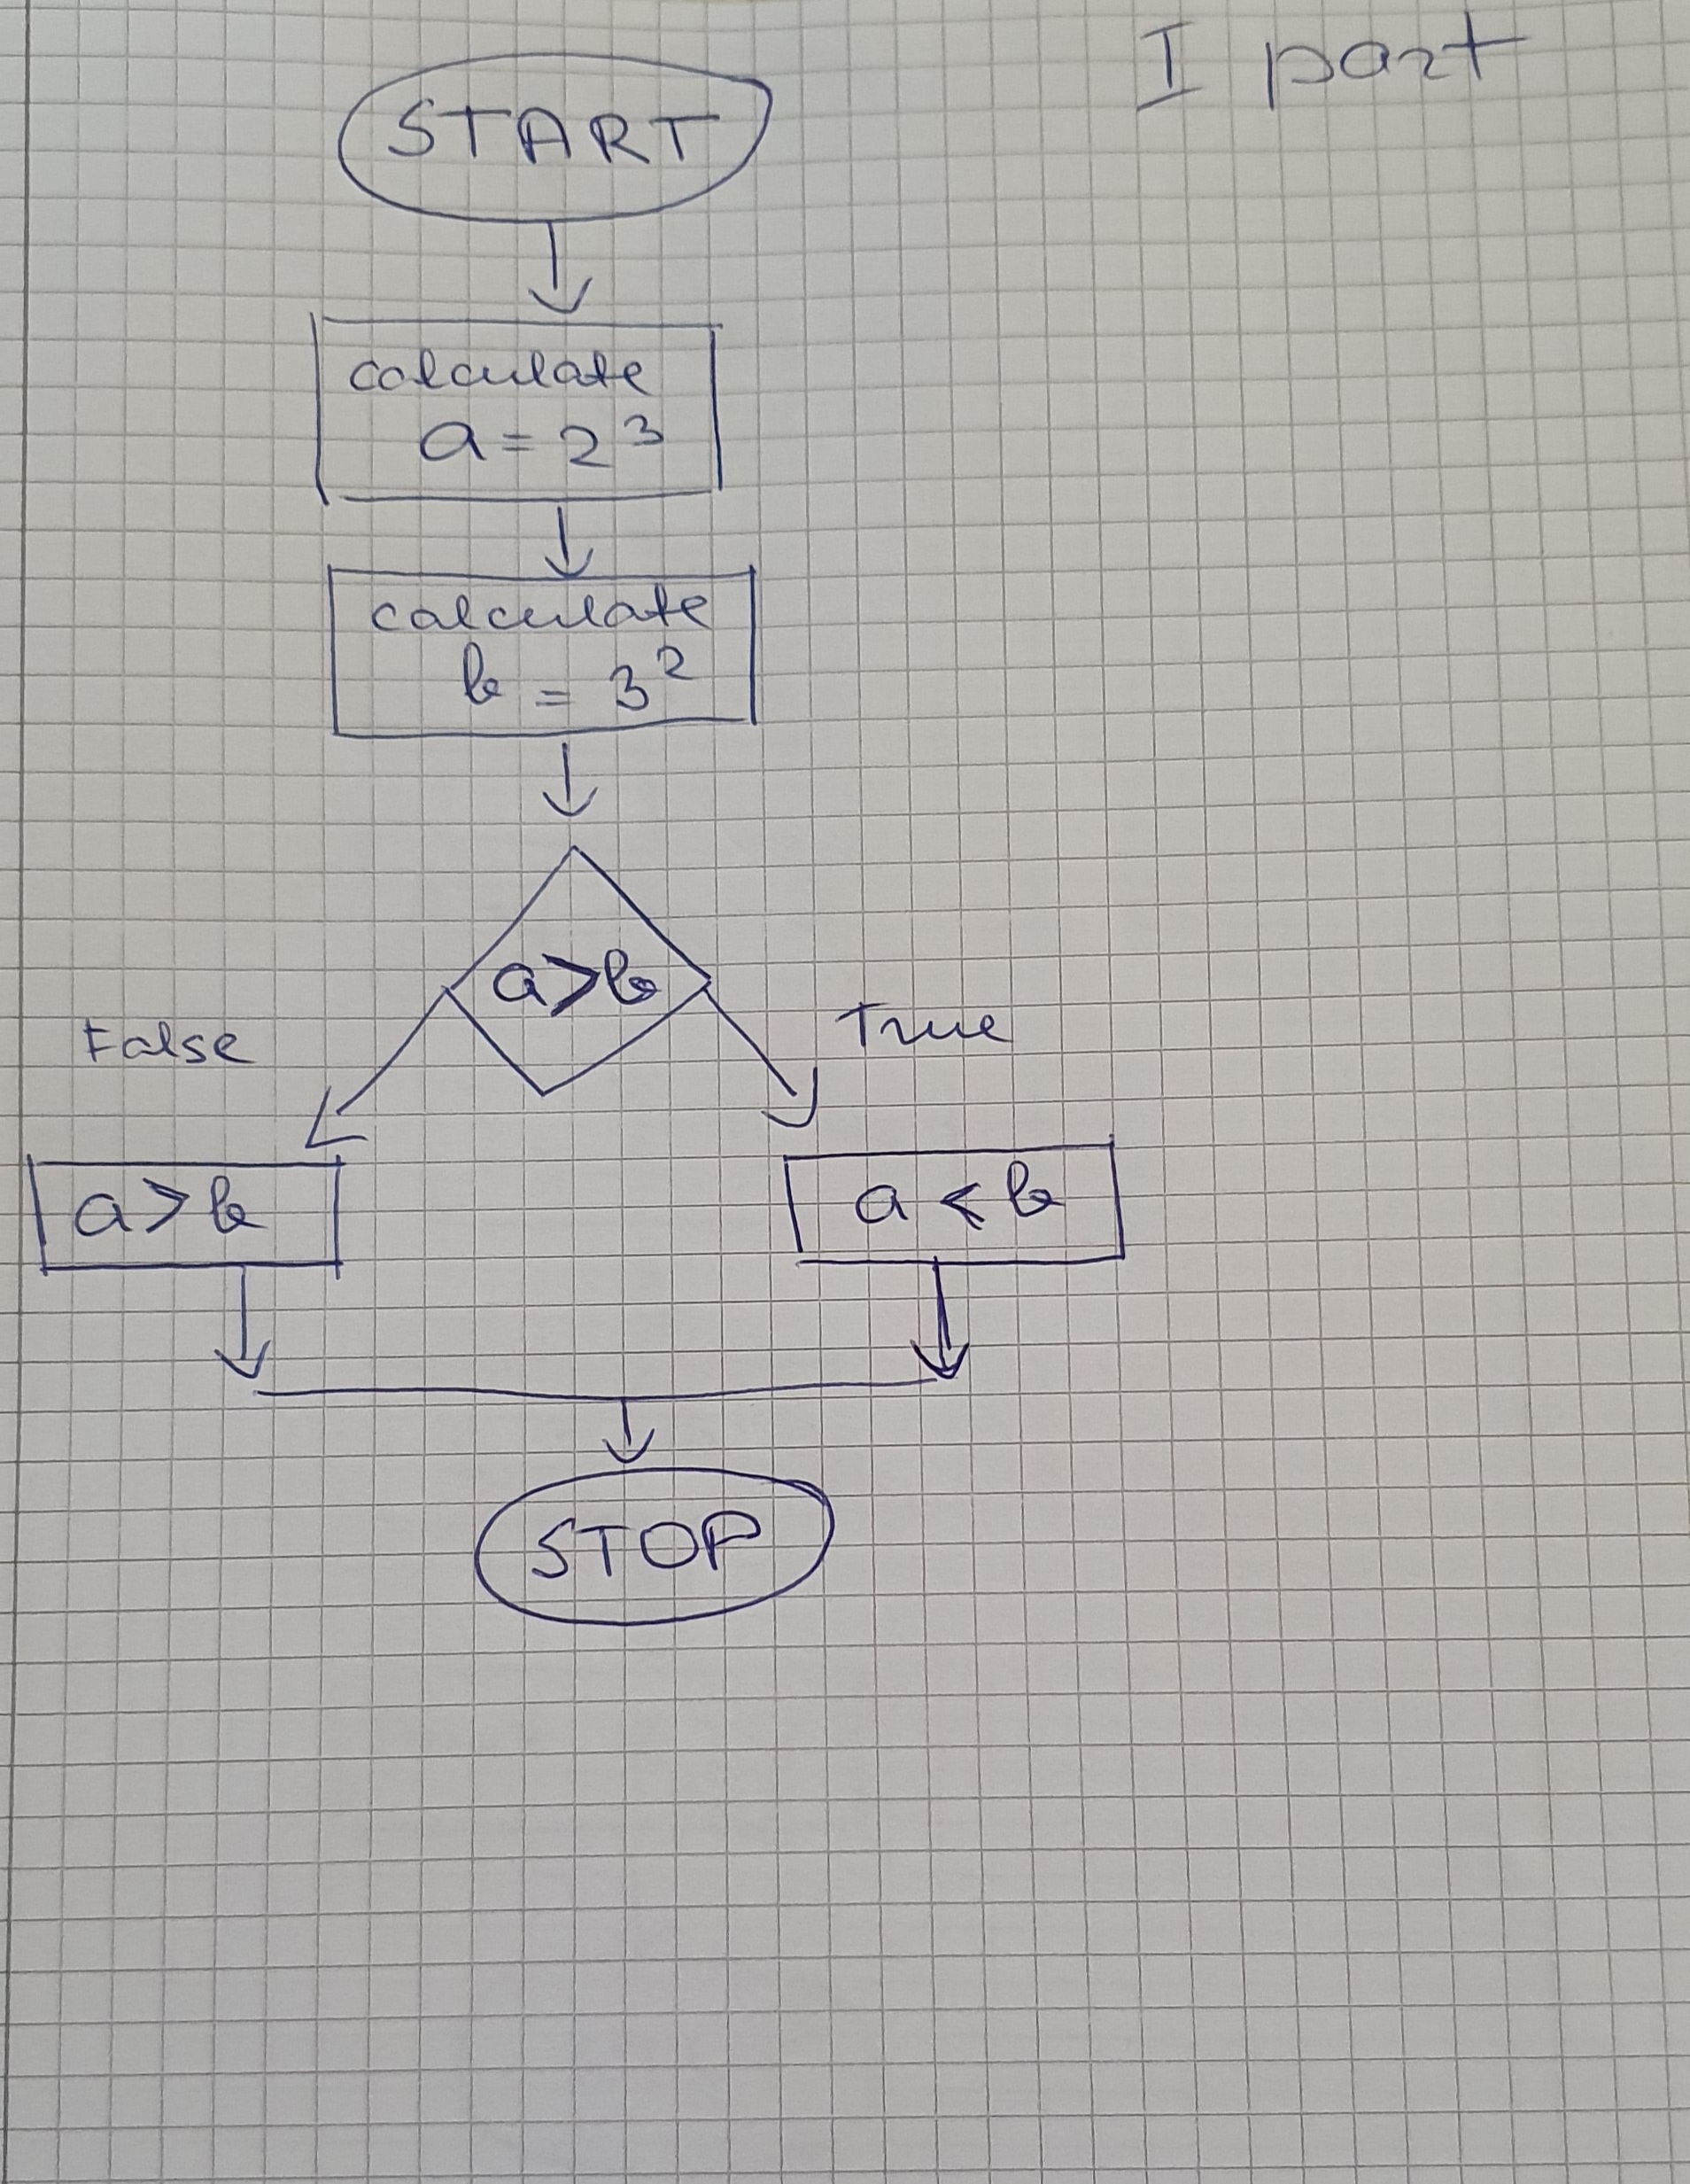 I part
START
calculate
a = 2³
calculate
b = 3²
a > b
False
True
a > b
a < b
STOP